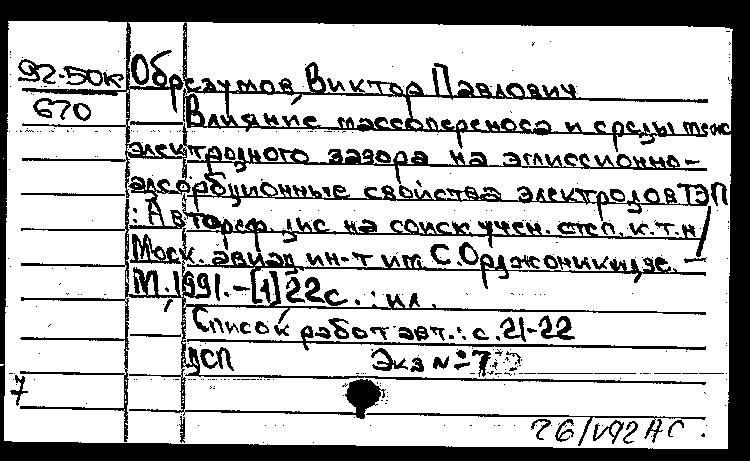 92-50к
670
Образумов, Виктор Павлович
Влияние массопереноса и среды меж
электродного зазора на эмиссионно-
адсорбционные свойства электродов ТЭП
: Автореф. дис. на соиск. учен. степ. к.т.н /
Моск. авиац. ин-т им. С. Орджоникидзе. -
М., 1991. - [1] 22 с. : ил.
Список работ авт.: с. 21-22
ДСП Экз № 7
7
26/V92 АС.